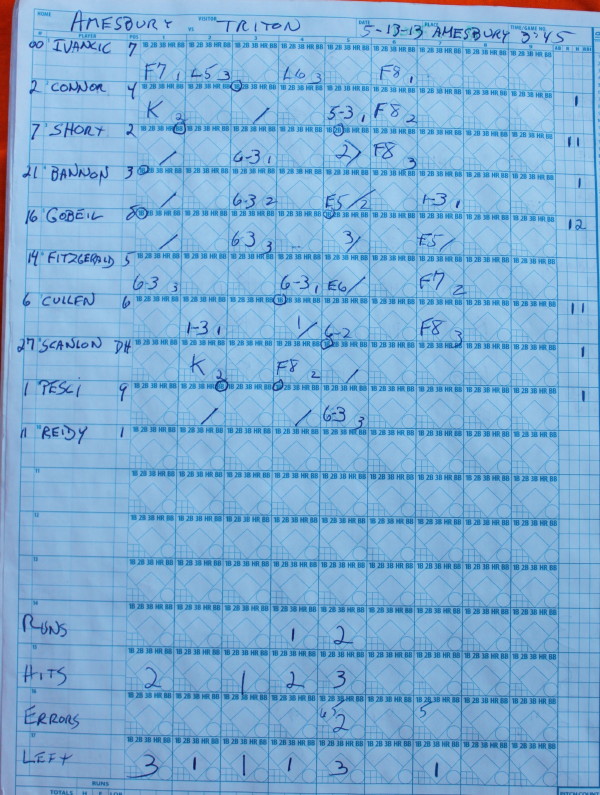 NAME AMESBURY VS VISITOR TRITON DATE 5-13-13 PLACE AMESBURY TIME/GAME NO. 3:45
PLAYER POS 1 2 3 4 5 6 7 8 9 AB R H RBI
00 IVANCIC 7 F7 1 L5 3 L6 3 F8 1
2 CONNOR 4 K 2 / 5-3 1 F8 2 1
7 SHORT 2 / 6-3 1 2/ F8 3 11
21 BANNON 3 / 6-3 2 E5/2 1-3 1 1
16 GOBEIL 8 / 63 3 - 3/ E5/ 12
14 FITZGERALD 5 6-3 3 6-3 1 E6/ F7 2
6 CULLEN 6 1-3 1 1/ 6-2 F8 3 11
27 SCANLON DH K 2 F8 2 / 1
1 PESCI 9 / / 6-3 3 1
11 REIDY 1
RUNS 1 2
HITS 2 1 2 3
ERRORS 2 5
LEFT 3 1 1 1 3 1
RUNS
TOTALS H R LOB
PITCH COUNT